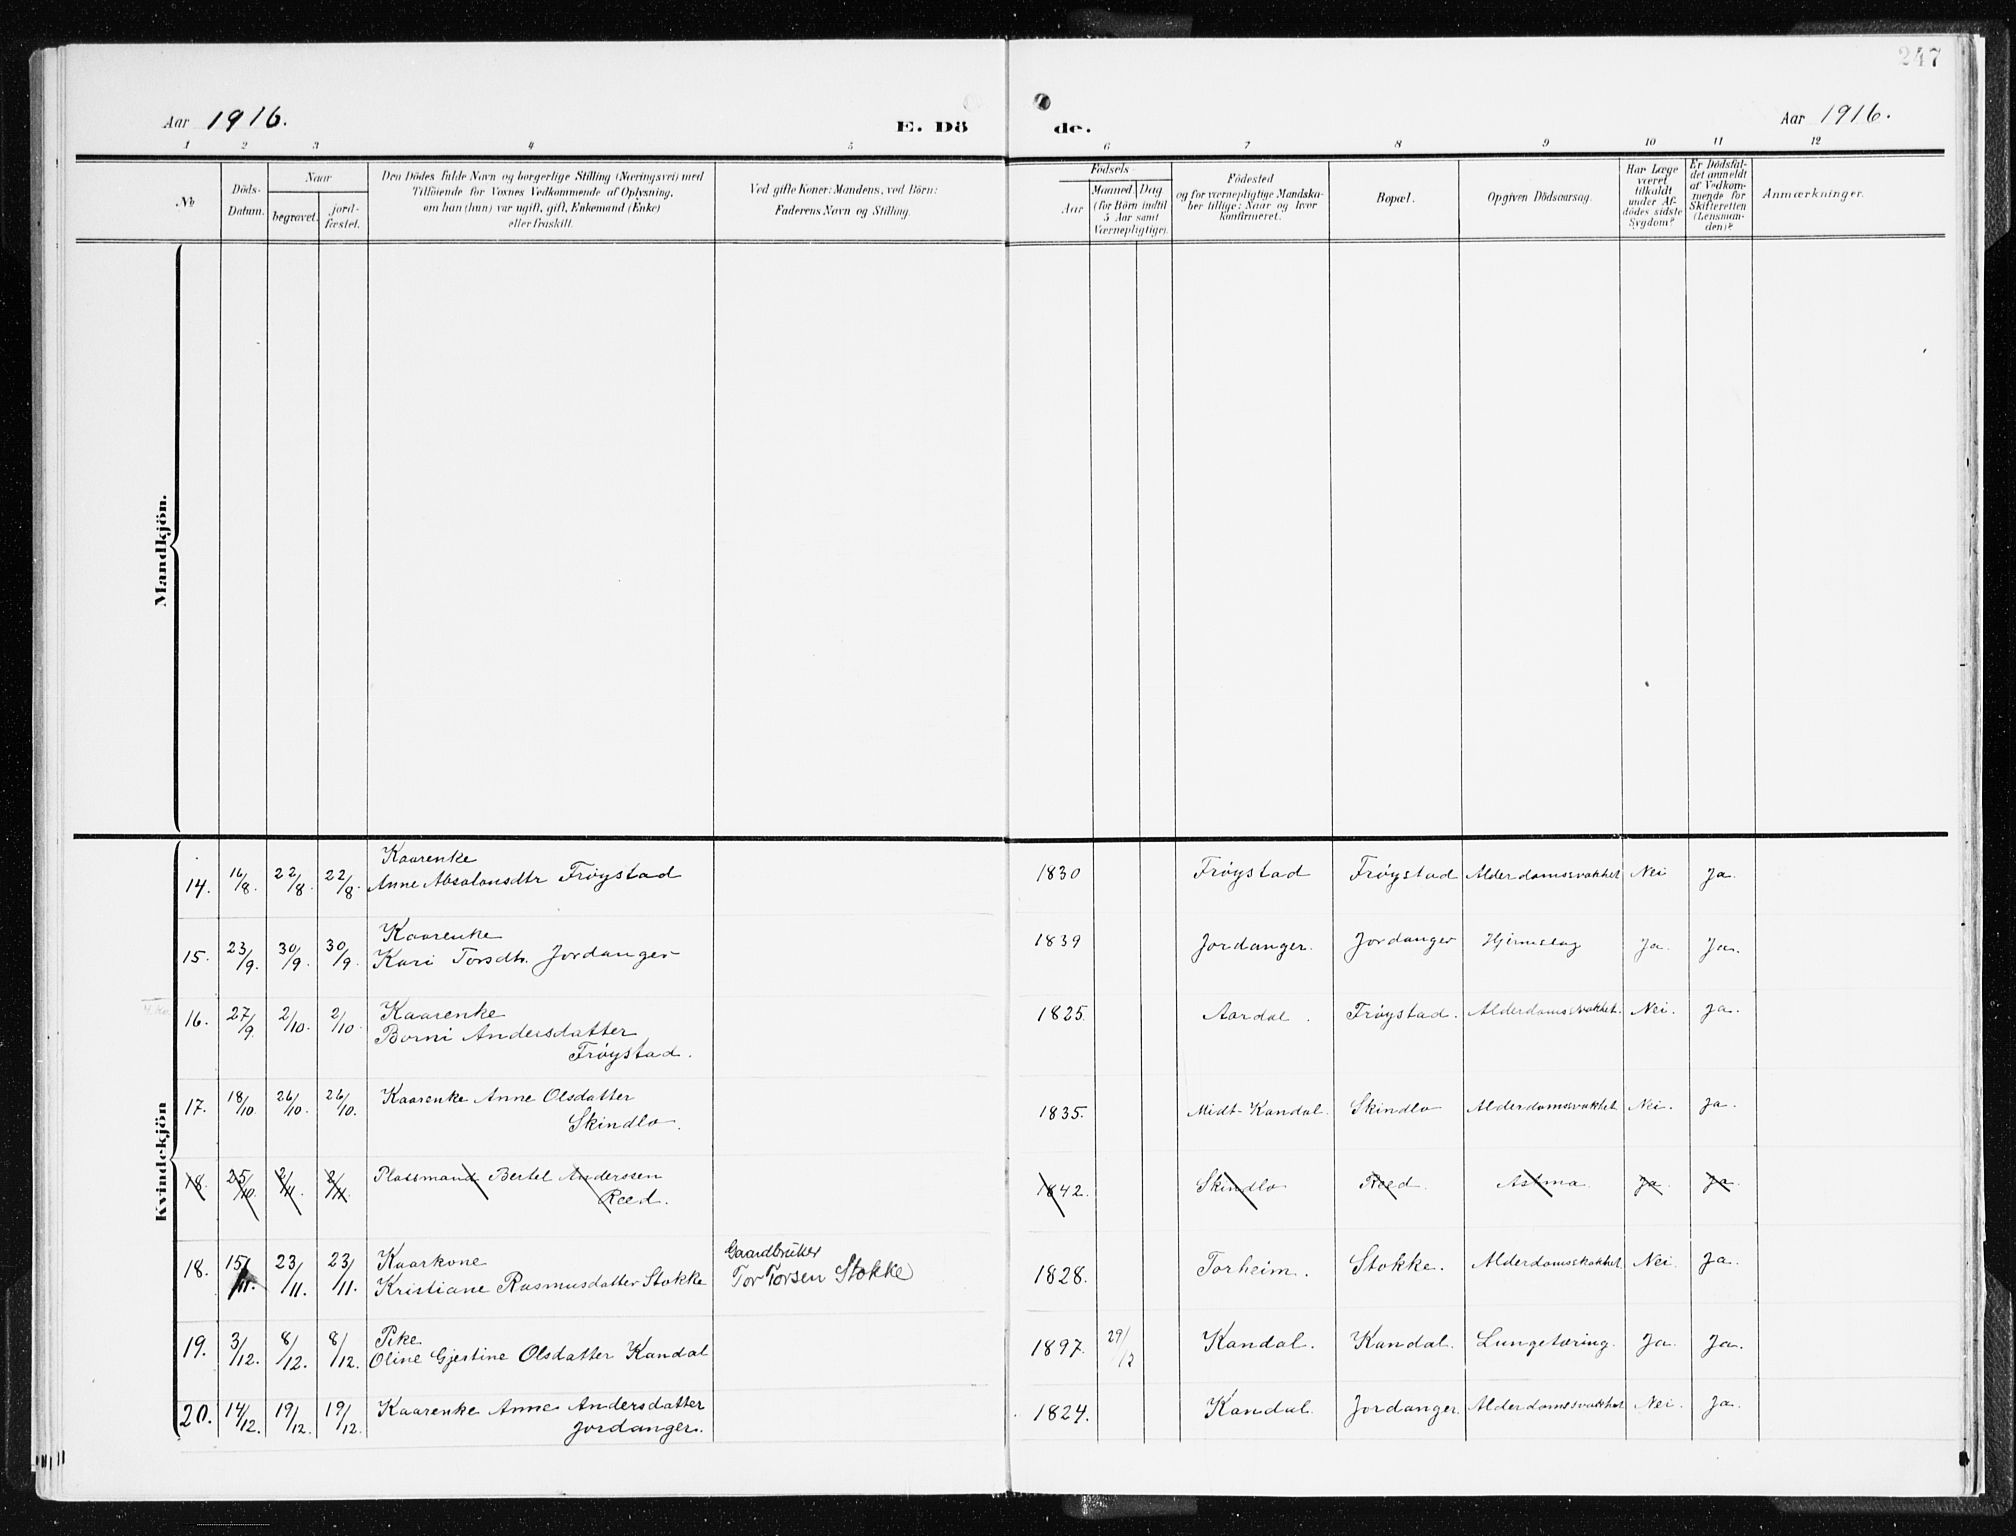 247
Aar 1916.
E. Dö
de.
Aar 1916.
1 2 3 4 5 6 7 8 9 10 11 12
No
Döds-
Datum.
Naar
begravet.
jord-
fæstet.
Den Dödes fulde Navn og borgerlige Stilling (Næringsvei) med
Tilföiende for Voxnes Vedkommende af Oplysning,
om han (hun) var ugift, gift, Enkemand (Enke)
eller fraskilt.
Ved gifte Koner: Mandens, ved Börn:
Faderens Navn og Stilling.
Födsels-
Aar
Maaned Dag
(for Börn indtil
5 Aar samt
Værnepligtige).
Födested
og for værnepligtige Mandska-
ber tillige: Naar og hvor
konfirmeret.
Bopæl.
Opgiven Dödsaarsag.
Har Læge
været
tilkaldt
under Af-
dödes sidste
Sygdom?
Er Dödsfal-
det anmeldt
af Vedkom-
mende for
Skifteretten
(Lensman-
den)?
Anmærkninger.
Mandkjön.
Kvindekjön
14. 16/8. 22/8. 22/8. Kaarenke
Anne Absalonsdtr Frøystad 1830 Frøystad Frøystad Alderdomssvakhet Nei Ja.
15. 23/9. 30/9. 30/9. Kaarenke
Kari Torsdtr. Jordanger 1839 Jordanger. Jordanger Hjerneslag Ja. Ja.
16. 27/9. 2/10. 2/10. Kaarenke
Borni Andersdatter
Frøystad. 1825. Aardal. Frøystad. Alderdomssvakhet. Nei. Ja.
17. 18/10. 26/10. 26/10. Kaarenke Anne Olsdatter
Skindlo. 1835. Midt-Kandal. Skindlo Alderdomssvakhet Nei. Ja.
18. 25/10. 2/11. 2/11. Plassmand Bertel Anderssen
Reed. 1842. Skindlo Reed. Astma. Ja. Ja.
18. 15/11. 23/11. 23/11. Kaarkone
Kristiane Rasmusdatter Stokke Gaardbruker
Tor Torsen Stokke 1828. Torheim. Stokke. Alderdomssvakhet Nei. Ja.
19. 3/12. 8/12. 8/12. Pike
Oline Gjertine Olsdatter Kandal 1897. 29/12 Kandal. Kandal. Lungetæring. Ja. Ja.
20. 14/12. 19/12. 19/12. Kaarenke Anne Andersdatter
Jordanger. 1824. Kandal. Jordanger. Alderdomssvakhet Nei. Ja.